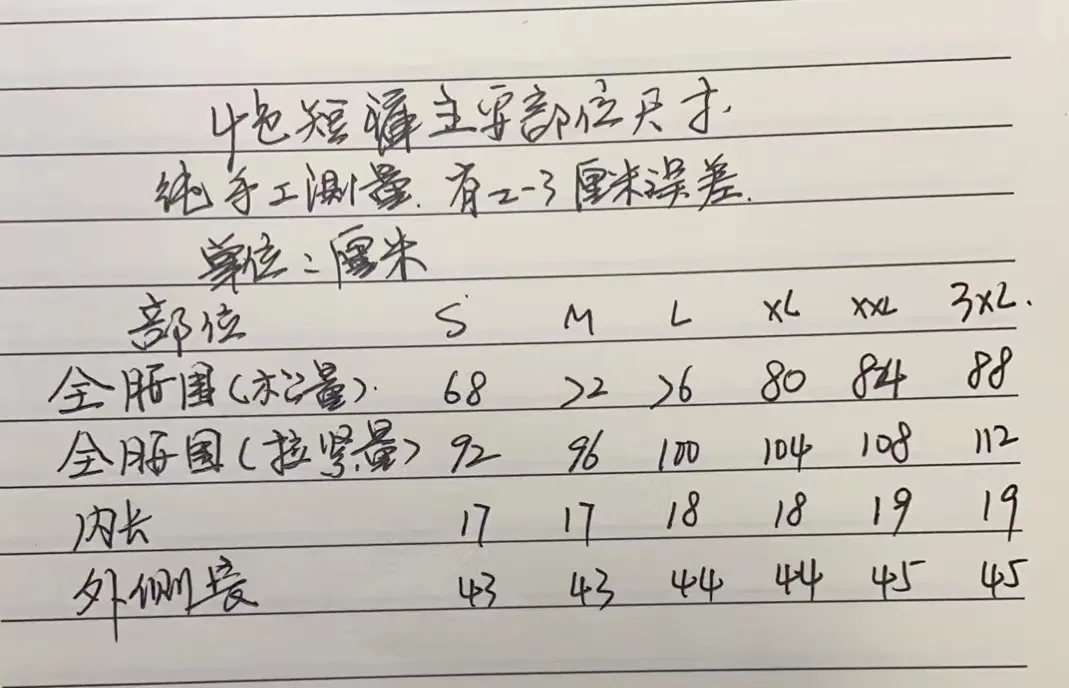 4色短裤主要部位尺寸.
纯手工测量.有2-3厘米误差.
单位:厘米
部位 S M L XL XXL 3XL.
全腰围(松量). 68 72 76 80 84 88
全腰围(拉紧量) 92 96 100 104 108 112
内长 17 17 18 18 19 19
外侧长 43 43 44 44 45 45